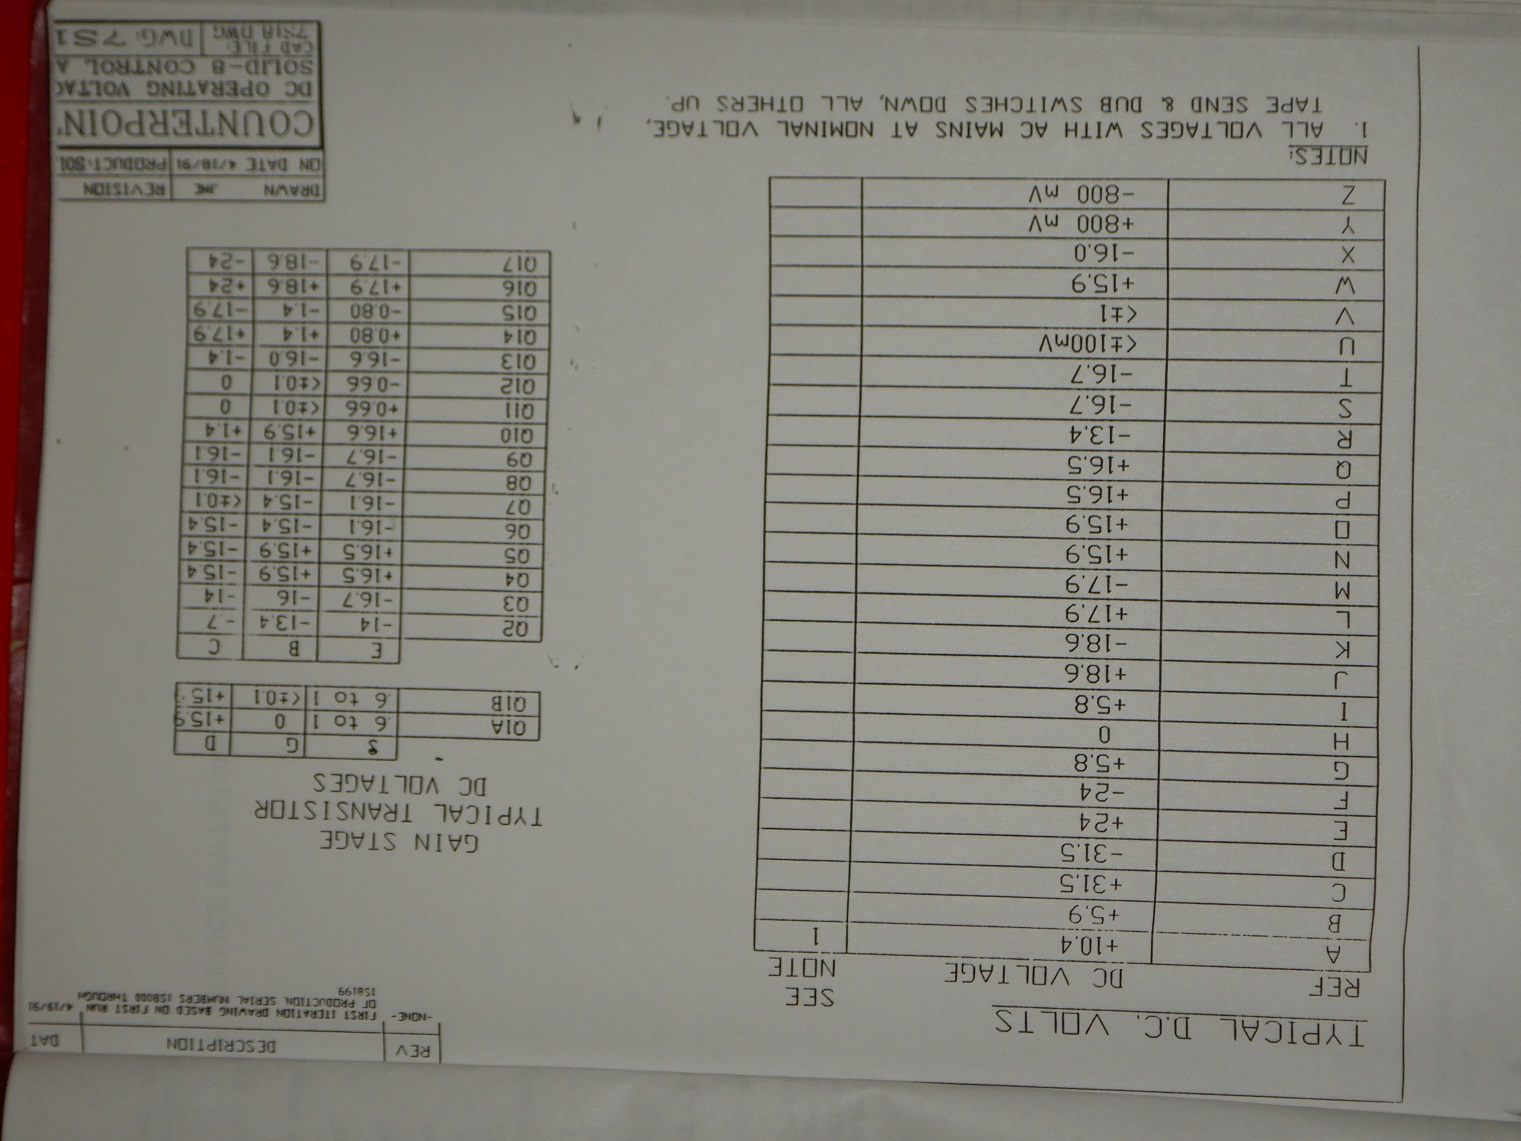 REV DESCRIPTION DAT
-NONE- FIRST ITERATION DRAWING BASED ON FIRST RUN 4/19/91
OF PRODUCTION, SERIAL NUMBERS 1S8000 THROUGH
1S8199
TYPICAL D.C. VOLTS
REF DC VOLTAGE SEE NOTE
A +10.4 1
B +5.9
C +31.5
D -31.5
E +24
F -24
G +5.8
H 0
I +5.8
J +18.6
K -18.6
L +17.9
M -17.9
N +15.9
O +15.9
P +16.5
Q +16.5
R -13.4
S -16.7
T -16.7
U <±100mV
V <±1
W +15.9
X -16.0
Y +800 mV
Z -800 mV
NOTES:
1. ALL VOLTAGES WITH AC MAINS AT NOMINAL VOLTAGE,
TAPE SEND & DUB SWITCHES DOWN, ALL OTHERS UP.
GAIN STAGE
TYPICAL TRANSISTOR
DC VOLTAGES
S G D
Q1A .6 to 1 0 +15.9
Q1B .6 to 1 <±0.1 +15
E B C
Q2 -14 -13.4 -7
Q3 -16.7 -16 -14
Q4 +16.5 +15.9 -15.4
Q5 +16.5 +15.9 -15.4
Q6 -16.1 -15.4 -15.4
Q7 -16.1 -15.4 <±0.1
Q8 -16.7 -16.1 -16.1
Q9 -16.7 -16.1 -16.1
Q10 +16.6 +15.9 +1.4
Q11 +0.66 <±0.1 0
Q12 -0.66 <±0.1 0
Q13 -16.6 -16.0 -1.4
Q14 +0.80 +1.4 +17.9
Q15 -0.80 -1.4 -17.9
Q16 +17.9 +18.6 +24
Q17 -17.9 -18.6 -24
DRAWN JME REVISION
ON DATE 4/18/91 PRODUCT: SOL
COUNTERPOIN
DC OPERATING VOLTAG
SOLID-8 CONTROL A
CAD FILE: 7S18.DWG DWG: 7S1